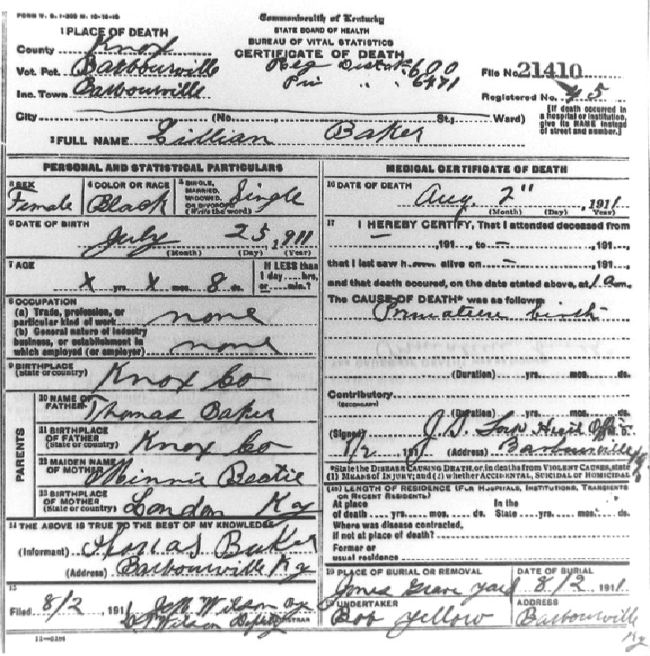 FORM V. S. 1-
Commonwealth of Kentucky
STATE BOARD OF HEALTH
BUREAU OF VITAL STATISTICS
CERTIFICATE OF DEATH
1 PLACE OF DEATH
County Knox
Vot. Pct. Barbourville
Reg Dist 600
File No. 21410
Inc. Town Barbourville
Pri " " 6471
Registered No. 45
City (No. St; Ward)
[If death occurred in a hospital or institution, give its NAME instead of street and number.]
2 FULL NAME Lillian Baker
PERSONAL AND STATISTICAL PARTICULARS
3 SEX Female
4 COLOR OR RACE Black
5 SINGLE, MARRIED, WIDOWED, OR DIVORCED (Write the word) Single
6 DATE OF BIRTH July 25, 1911
(Month) (Day) (Year)
7 AGE X yrs X mos. 8 ds.
If LESS than 1 day hrs. or min.?
8 OCCUPATION
(a) Trade, profession, or particular kind of work none
(b) General nature of industry business, or establishment in which employed (or employer) none
9 BIRTHPLACE (State or country) Knox Co
PARENTS
10 NAME OF FATHER Thomas Baker
11 BIRTHPLACE OF FATHER (State or country) Knox Co
12 MAIDEN NAME OF MOTHER Minnie Beatie
13 BIRTHPLACE OF MOTHER (State or country) London Ky
14 THE ABOVE IS TRUE TO THE BEST OF MY KNOWLEDGE
(Informant) Thomas Baker
(Address) Barbourville Ky
15
Filed 8/2, 1911 Wilson
Wilson
MEDICAL CERTIFICATE OF DEATH
16 DATE OF DEATH Aug. 2", 1911
(Month) (Day) (Year)
17 I HEREBY CERTIFY, That I attended deceased from
—, 191 to —, 191
that I last saw h alive on —, 191
and that death occured, on the date stated above, at 1 am.
The CAUSE OF DEATH* was as follows
Premature birth
(Duration) yrs. mos. ds.
Contributory
(SECONDARY)
(Duration) yrs. mos. ds.
(Signed) J. S.
8/2, 191 (Address) Barbourville Ky
*State the DISEASE CAUSING DEATH, or, in deaths from VIOLENT CAUSES, state (1) MEANS OF INJURY; and (2) whether ACCIDENTAL, SUICIDAL or HOMICIDAL
18 LENGTH OF RESIDENCE (FOR HOSPITALS, INSTITUTIONS, TRANSIENTS OR RECENT RESIDENTS.)
At place of death yrs. mos. ds. In the State yrs. mos. ds.
Where was disease contracted,
If not at place of death?
Former or usual residence
19 PLACE OF BURIAL OR REMOVAL Jones Grave yard
DATE OF BURIAL 8/2 1911
UNDERTAKER Bob Yellow
ADDRESS Barbourville Ky